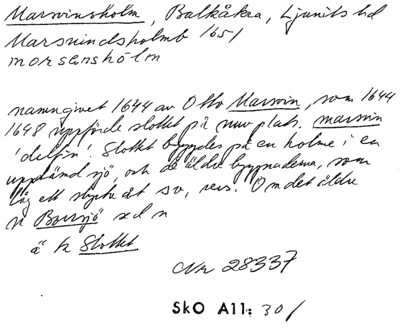 Marsvinsholm, Balkåkra, Ljunits hd
Marsuindsholmb 1651
morsenshólm
namngivet 1644 av Otto Marsvin, som 1644
1648 uppförde slottet på nuv plats. marsvin
'delfin'. Slottet byggdes på en holme i en
uppdämd sjö, och de äldre byggnaderna, som
låg ett stycke åt sv, revs. Om det äldre
n Borrsjö se d n
ä k Slottet
Nr 28337
SkO A11: 301